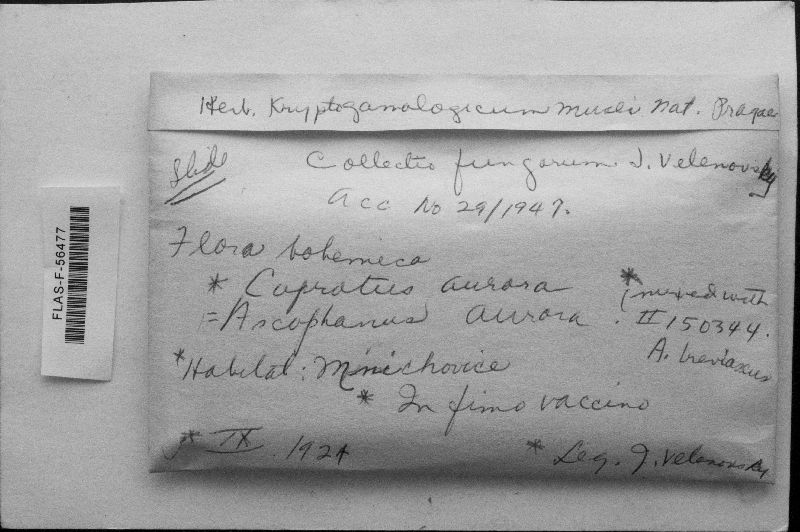 Herb. Kryptogamologicum Musei Nat. Pragae
Slide
Collectio fungorum J. Velenovsky
Acc No 29/1947.
Flora bohemica
* Coprotus aurora
= Ascophanus aurora.
* (mixed with
II 150344.
A. breviascus
* Habitat: Mnichovice
* In fimo vaccino
* IX 1924
* Leg. J. Velenovsky
FLAS-F-56477